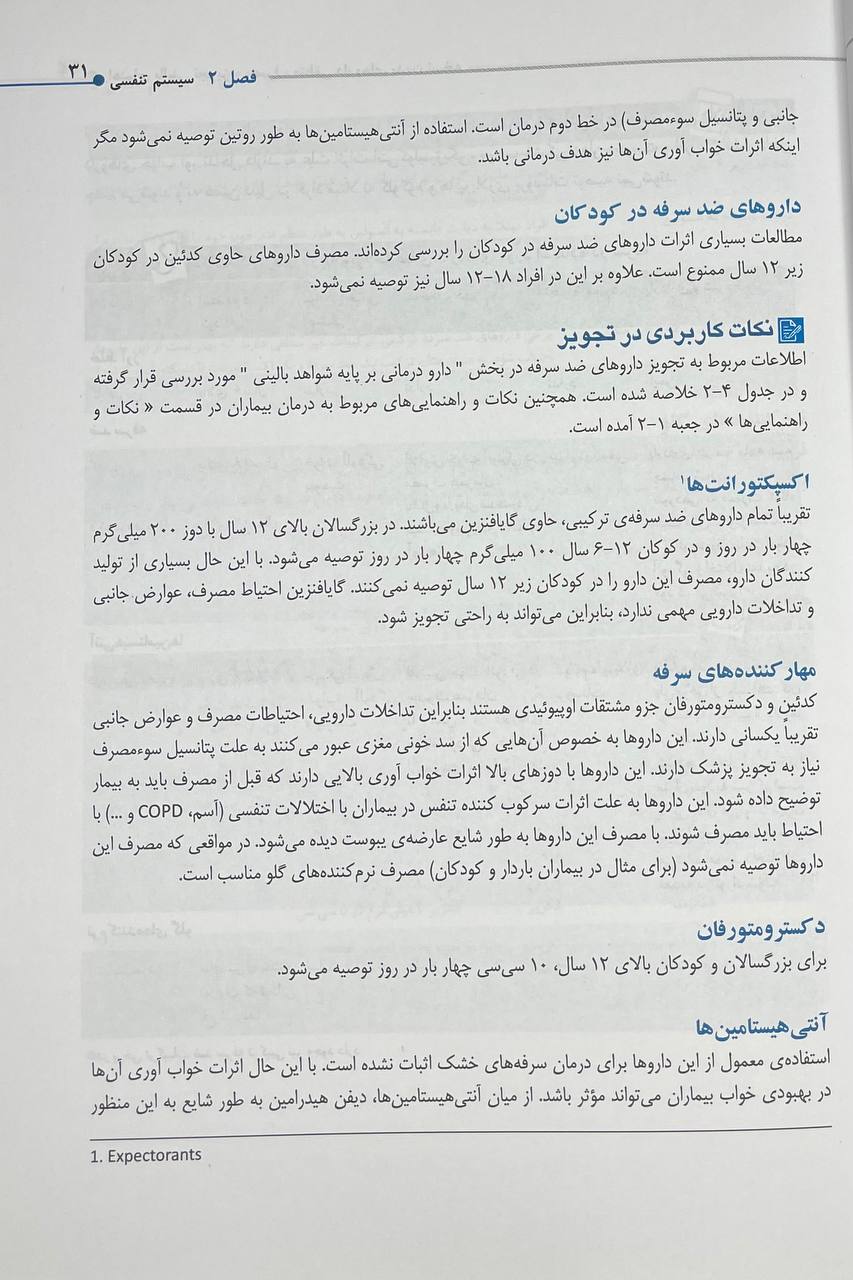 فصل ۲ سیستم تنفسی ۳۱
جانبی و پتانسیل سوءمصرف) در خط دوم درمان است. استفاده از آنتی‌هیستامین‌ها به طور روتین توصیه نمی‌شود مگر
اینکه اثرات خواب آوری آن‌ها نیز هدف درمانی باشد.
داروهای ضد سرفه در کودکان
مطالعات بسیاری اثرات داروهای ضد سرفه در کودکان را بررسی کرده‌اند. مصرف داروهای حاوی کدئین در کودکان
زیر ۱۲ سال ممنوع است. علاوه بر این در افراد ۱۸-۱۲ سال نیز توصیه نمی‌شود.
نکات کاربردی در تجویز
اطلاعات مربوط به تجویز داروهای ضد سرفه در بخش " دارو درمانی بر پایه شواهد بالینی " مورد بررسی قرار گرفته
و در جدول ۴-۲ خلاصه شده است. همچنین نکات و راهنمایی‌های مربوط به درمان بیماران در قسمت « نکات و
راهنمایی‌ها » در جعبه ۱-۲ آمده است.
اکسپکتورانت‌ها۱
تقریباً تمام داروهای ضد سرفه‌ی ترکیبی، حاوی گایافنزین می‌باشند. در بزرگسالان بالای ۱۲ سال با دوز ۲۰۰ میلی‌گرم
چهار بار در روز و در کوکان ۱۲-۶ سال ۱۰۰ میلی‌گرم چهار بار در روز توصیه می‌شود. با این حال بسیاری از تولید
کنندگان دارو، مصرف این دارو را در کودکان زیر ۱۲ سال توصیه نمی‌کنند. گایافنزین احتیاط مصرف، عوارض جانبی
و تداخلات دارویی مهمی ندارد، بنابراین می‌تواند به راحتی تجویز شود.
مهار کننده‌های سرفه
کدئین و دکسترومتورفان جزو مشتقات اوپیوئیدی هستند بنابراین تداخلات دارویی، احتیاطات مصرف و عوارض جانبی
تقریباً یکسانی دارند. این داروها به خصوص آن‌هایی که از سد خونی مغزی عبور می‌کنند به علت پتانسیل سوءمصرف
نیاز به تجویز پزشک دارند. این داروها با دوزهای بالا اثرات خواب آوری بالایی دارند که قبل از مصرف باید به بیمار
توضیح داده شود. این داروها به علت اثرات سرکوب کننده تنفس در بیماران با اختلالات تنفسی (آسم، COPD و ...) با
احتیاط باید مصرف شوند. با مصرف این داروها به طور شایع عارضه‌ی یبوست دیده می‌شود. در مواقعی که مصرف این
داروها توصیه نمی‌شود (برای مثال در بیماران باردار و کودکان) مصرف نرم‌کننده‌های گلو مناسب است.
دکسترومتورفان
برای بزرگسالان و کودکان بالای ۱۲ سال، ۱۰ سی‌سی چهار بار در روز توصیه می‌شود.
آنتی‌هیستامین‌ها
استفاده‌ی معمول از این داروها برای درمان سرفه‌های خشک اثبات نشده است. با این حال اثرات خواب آوری آن‌ها
در بهبودی خواب بیماران می‌تواند مؤثر باشد. از میان آنتی‌هیستامین‌ها، دیفن هیدرامین به طور شایع به این منظور
1. Expectorants